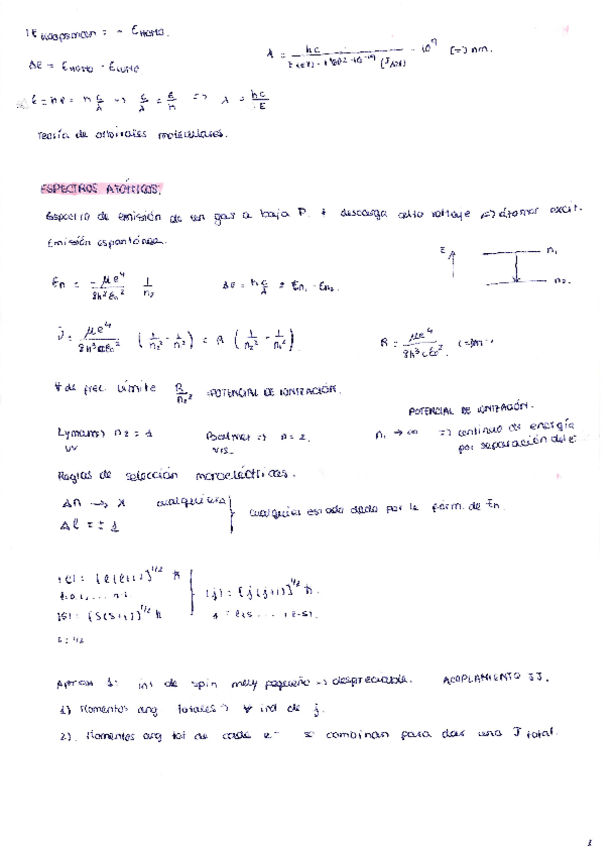 IE Koopmann = - E HOMO.
ΔE = E HOMO - E LUMO
λ = hc / (E(eV) · 1'602·10⁻¹⁹ (J/eV)) · 10⁹ (=) nm.
E = hν = h c/λ → c/λ = E/h => λ = hc/E
Teoría de orbitales moleculares.
ESPECTROS ATÓMICOS.
Espectro de emisión de un gas a baja P. + descarga alto voltaje => átomos excit.
Emisión espontánea.
E
n₁
n₂.
En = -μe⁴ / 8h²ε₀² 1/n₂
ΔE = h c/λ = En₁ - En₂.
ν̄ = μe⁴ / 8h³cε₀² (1/n₂² - 1/n₁²) = R (1/n₂² - 1/n₁²)
R = μe⁴ / 8h³cε₀².
de frec. Límite R/n₂² =POTENCIAL DE IONIZACIÓN.
POTENCIAL DE IONIZACIÓN.
Lyman => n₂ = 1
UV
Balmer => n = 2.
VIS.
n₁ → ∞ => continuo de energía
por separación del e⁻
Reglas de selección monoeléctricas.
Δn → x cualquiera
Δl = ± 1
cualquier estado dado por la fórm. de En.
|l| = [l(l+1)]^1/2 ħ
|s| = [s(s+1)]^1/2 ħ
s = 1/2
|j| = [j(j+1)]^1/2 ħ
Aprox 1: int de spin muy pequeño → despreciable. ACOPLAMIENTO JJ.
1) Momentos ang totales → ind de j.
2) Momentos ang tot de cada e⁻ se combinan para dar una J total.
1